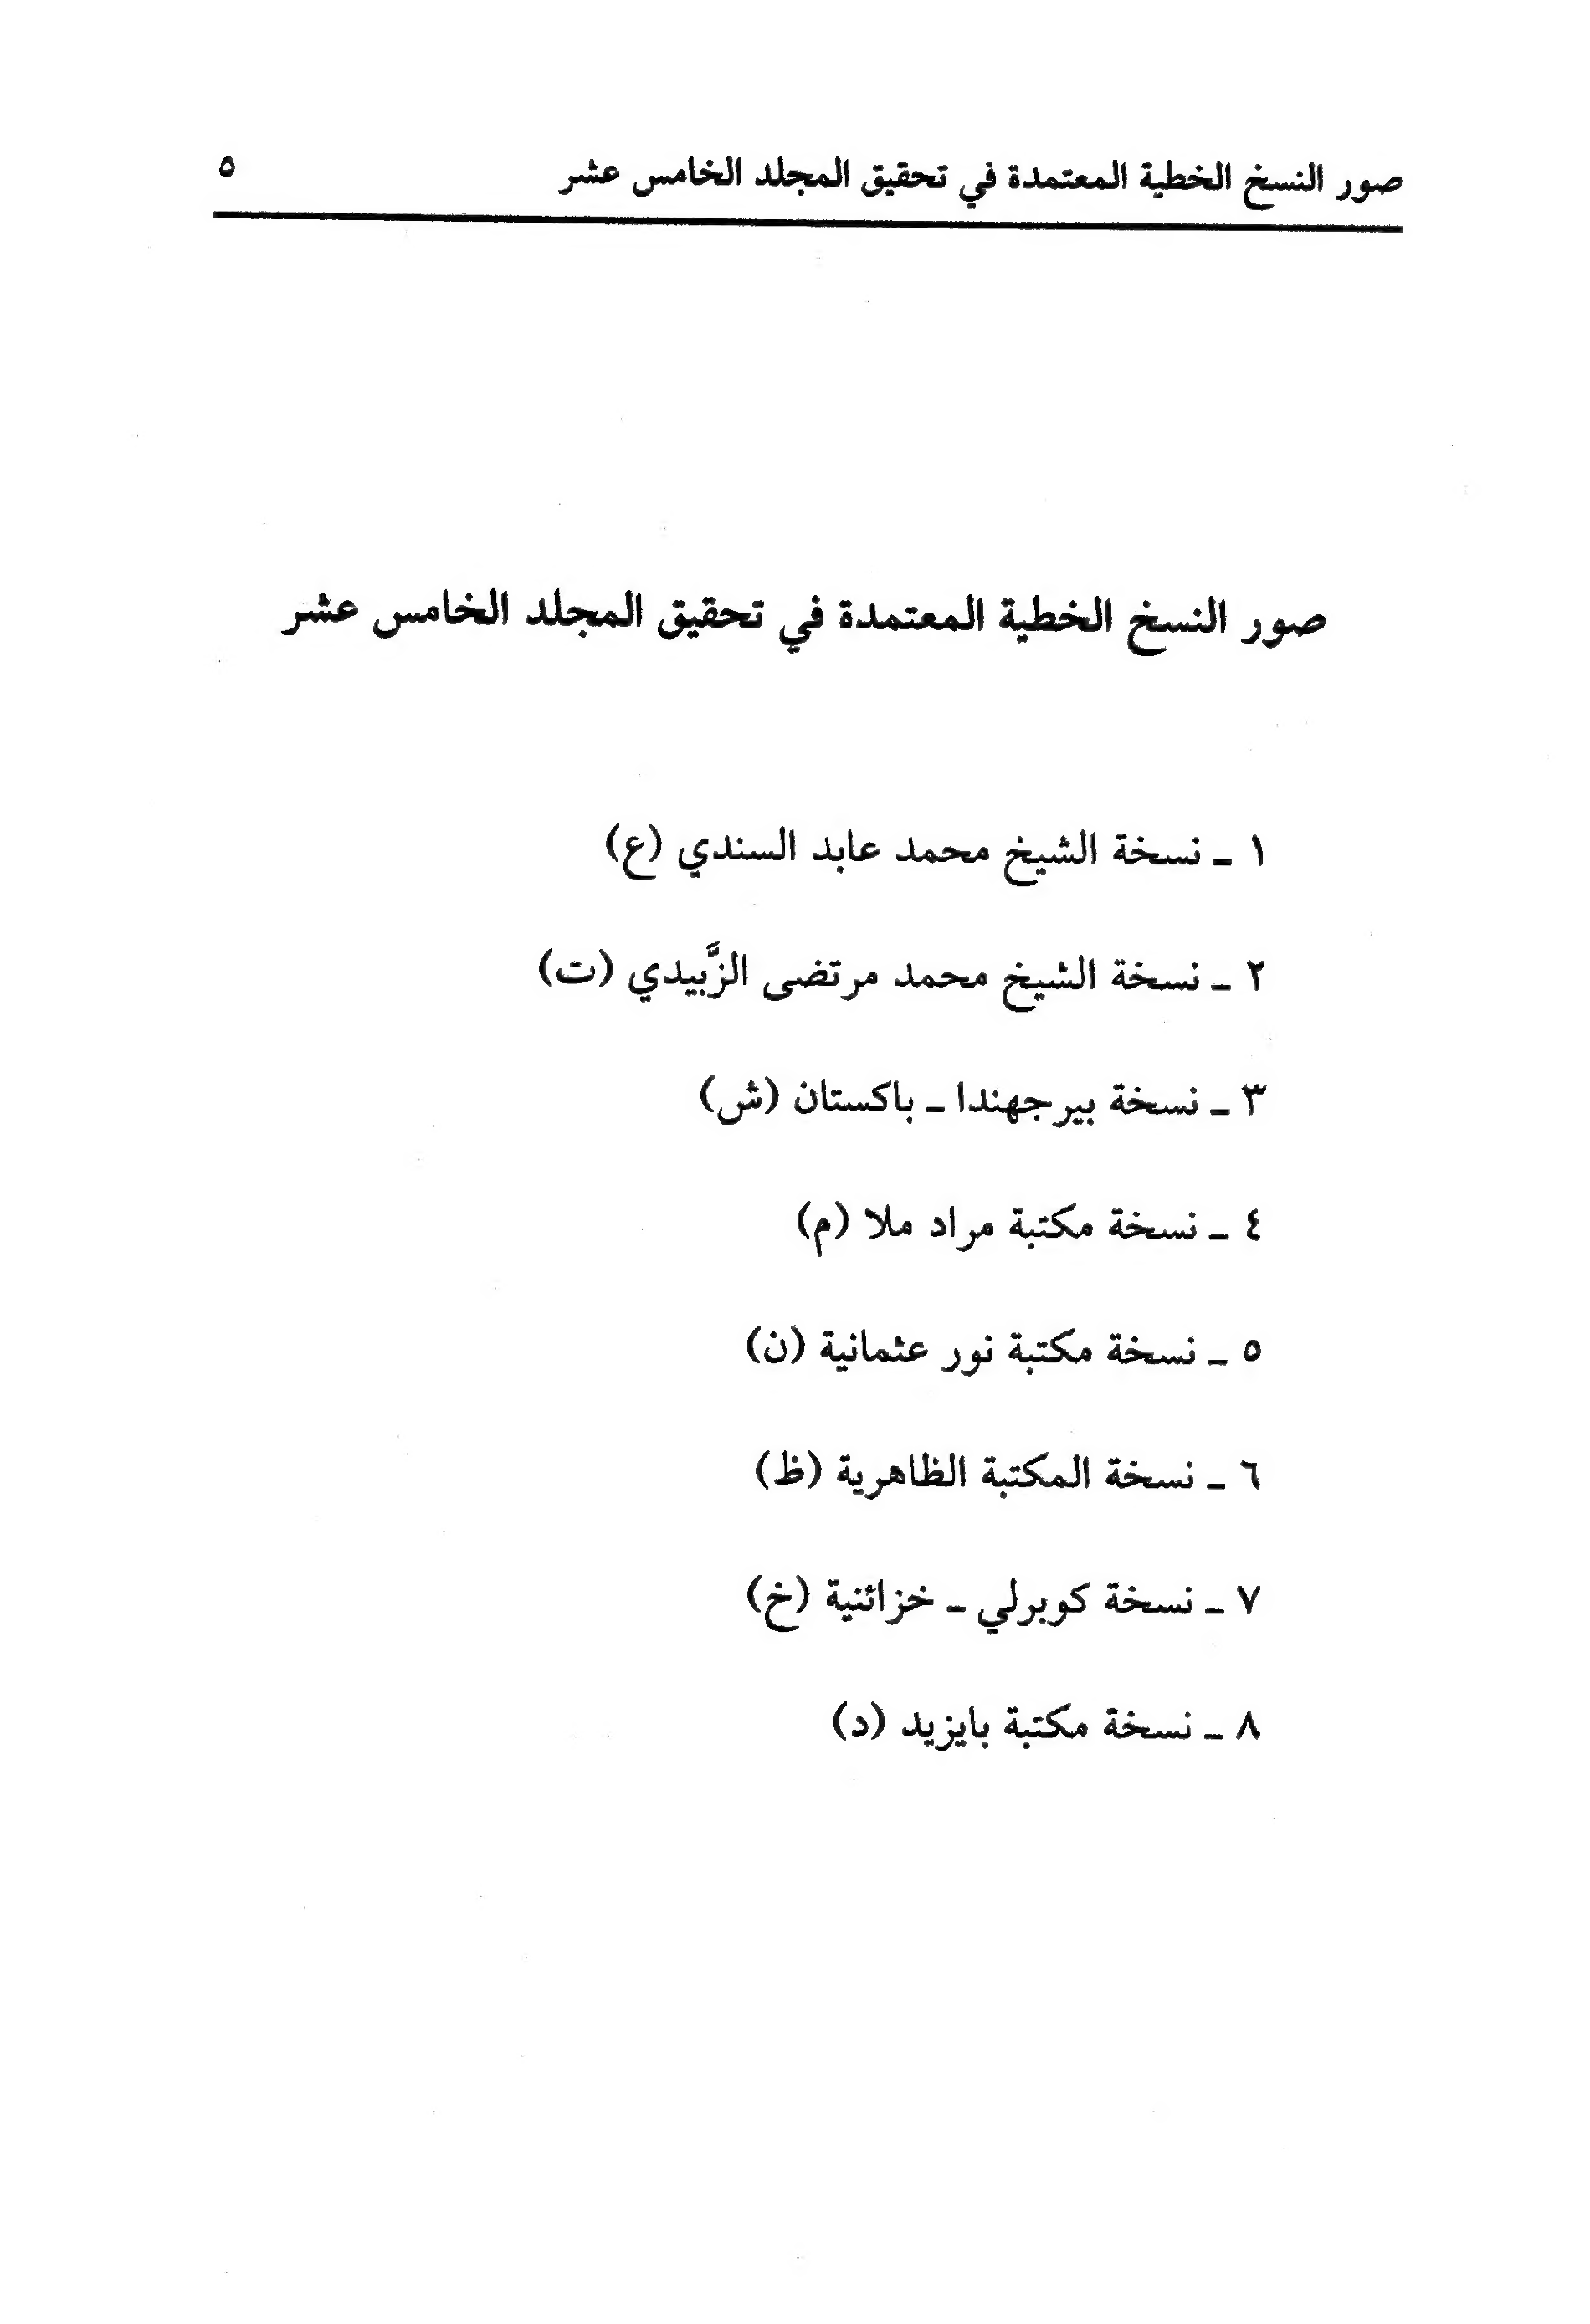 صور النسخ الخطية المعتمدة في تحقيق المجلد الخامس عشر ٥
صور النسخ الخطية المعتمدة في تحقيق المجلد الخامس عشر
١ ـ نسخة الشيخ محمد عابد السندي (ع)
٢ ـ نسخة الشيخ محمد مرتضى الزَّبيدي (ت)
٣ ـ نسخة بيرجهندا ـ باكستان (ش)
٤ ـ نسخة مكتبة مراد ملا (م)
٥ ـ نسخة مكتبة نور عثمانية (ن)
٦ ـ نسخة المكتبة الظاهرية (ظ)
٧ ـ نسخة كوبرلي ـ خزائنية (خ)
٨ ـ نسخة مكتبة بايزيد (د)